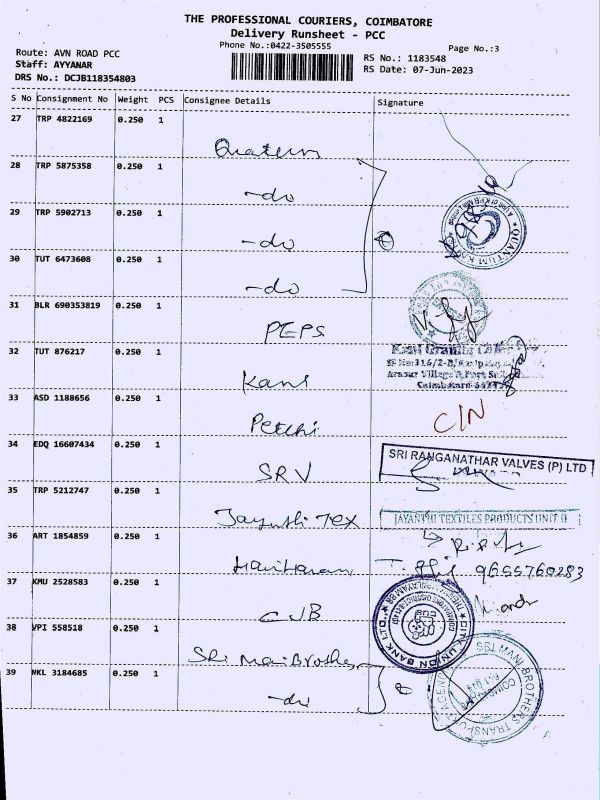 THE PROFESSIONAL COURIERS, COIMBATORE
Delivery Runsheet - PCC
Phone No.:0422-3505555
Page No.:3
Route: AVN ROAD PCC
RS No.: 1183548
Staff: AYYANAR
RS Date: 07-Jun-2023
DRS No.: DCJB118354803
S No Consignment No Weight PCS Consignee Details Signature
27 TRP 4822169 0.250 1
28 TRP 5875358 0.250 1
-do
29 TRP 5902713 0.250 1
-do
QUANTUM
30 TUT 6473608 0.250 1
-do
31 BLR 690353819 0.250 1
PEPS
32 TUT 876217 0.250 1
Kani
33 ASD 1188656 0.250 1
Petchi
CIN
34 EDQ 16607434 0.250 1
SRV
SRI RANGANATHAR VALVES (P) LTD
35 TRP 5212747 0.250 1
Jayanthi Tex
JAYANTHI TEXTILES PRODUCTS UNIT II
36 ART 1854859 0.250 1
Hariharan
9655760283
37 KMU 2528583 0.250 1
CUB
CITY UNION BANK LTD
38 VPI 558518 0.250 1
Sri Mani Brothers
SRI MANI BROTHERS TRANSPORT
39 NKL 3184685 0.250 1
-do